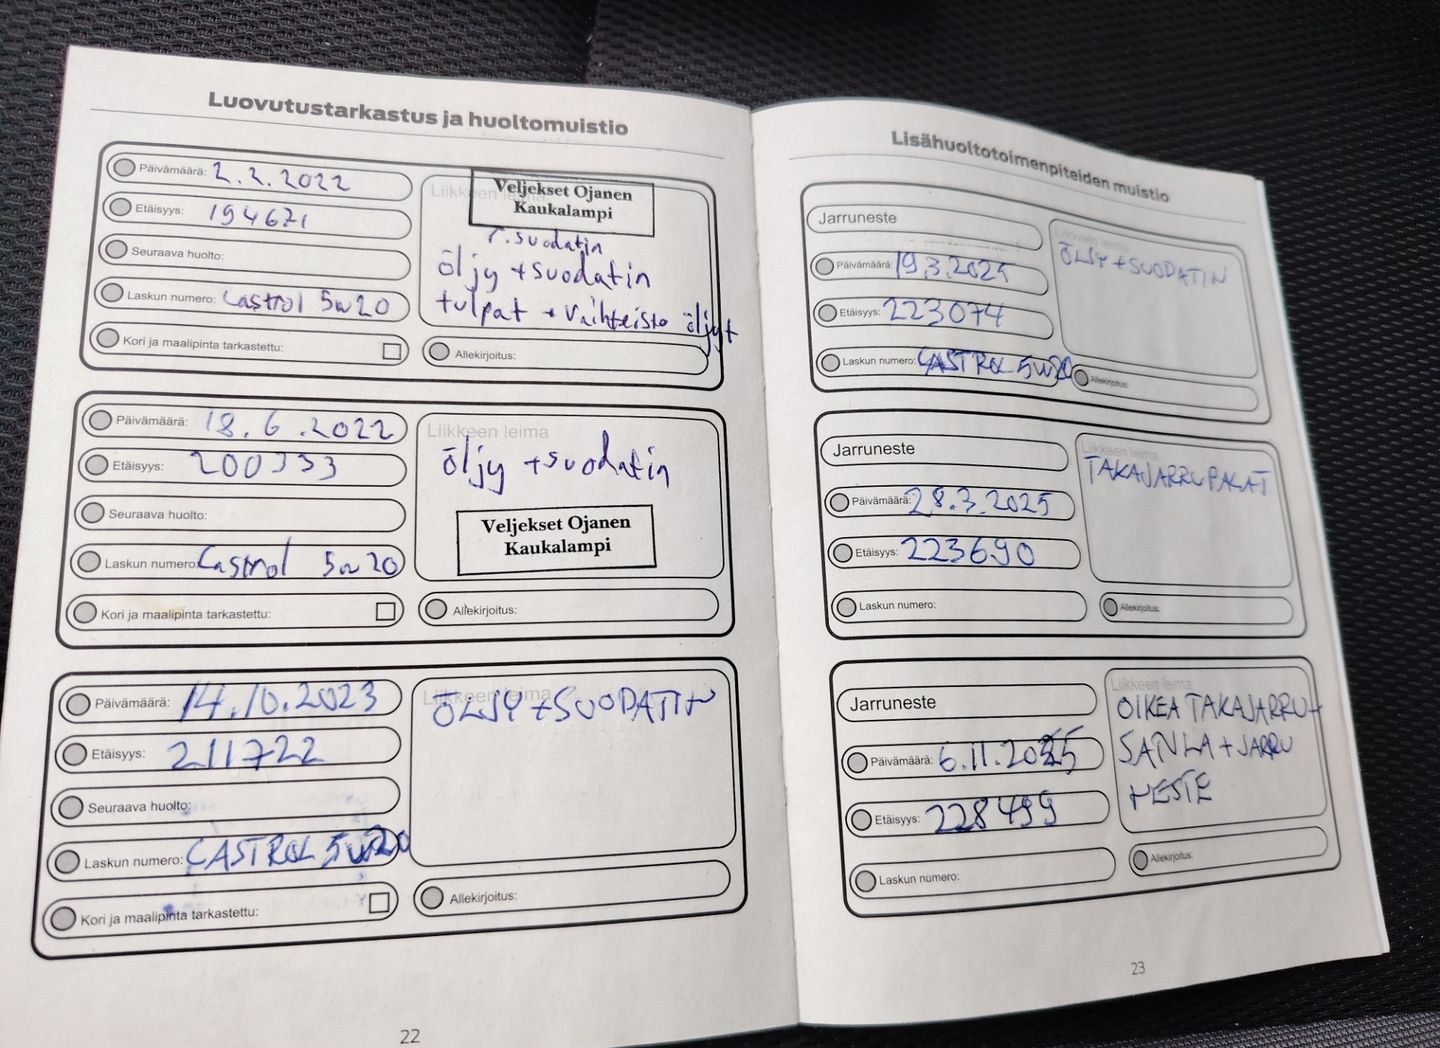 Luovutustarkastus ja huoltomuistio
Päivämäärä: 2.2.2022
Etäisyys: 194671
Seuraava huolto:
Laskun numero: Castrol 5w20
Kori ja maalipinta tarkastettu:
Liikkeen leima
Veljekset Ojanen
Kaukalampi
r.suodatin
öljy +suodatin
tulpat + vaihteisto öljyt
Allekirjoitus:
Päivämäärä: 18.6.2022
Etäisyys: 200333
Seuraava huolto:
Laskun numero: Castrol 5w20
Kori ja maalipinta tarkastettu:
Liikkeen leima
öljy +suodatin
Veljekset Ojanen
Kaukalampi
Allekirjoitus:
Päivämäärä: 14.10.2023
Etäisyys: 211722
Seuraava huolto:
Laskun numero: CASTROL 5W20
Kori ja maalipinta tarkastettu:
Liikkeen leima
ÖLJY +SUODATIN
Allekirjoitus:
22
Lisähuoltotoimenpiteiden muistio
Jarruneste
Päivämäärä: 19.3.2025
Etäisyys: 223074
Laskun numero: CASTROL 5W20
Liikkeen leima
ÖLJY +SUODATIN
Allekirjoitus:
Jarruneste
Päivämäärä: 28.3.2025
Etäisyys: 223690
Laskun numero:
Liikkeen leima
TAKAJARRUPALAT
Allekirjoitus:
Jarruneste
Päivämäärä: 6.11.2025
Etäisyys: 228499
Laskun numero:
Liikkeen leima
OIKEA TAKAJARRU+
SANLA + JARRU
NESTE
Allekirjoitus:
23